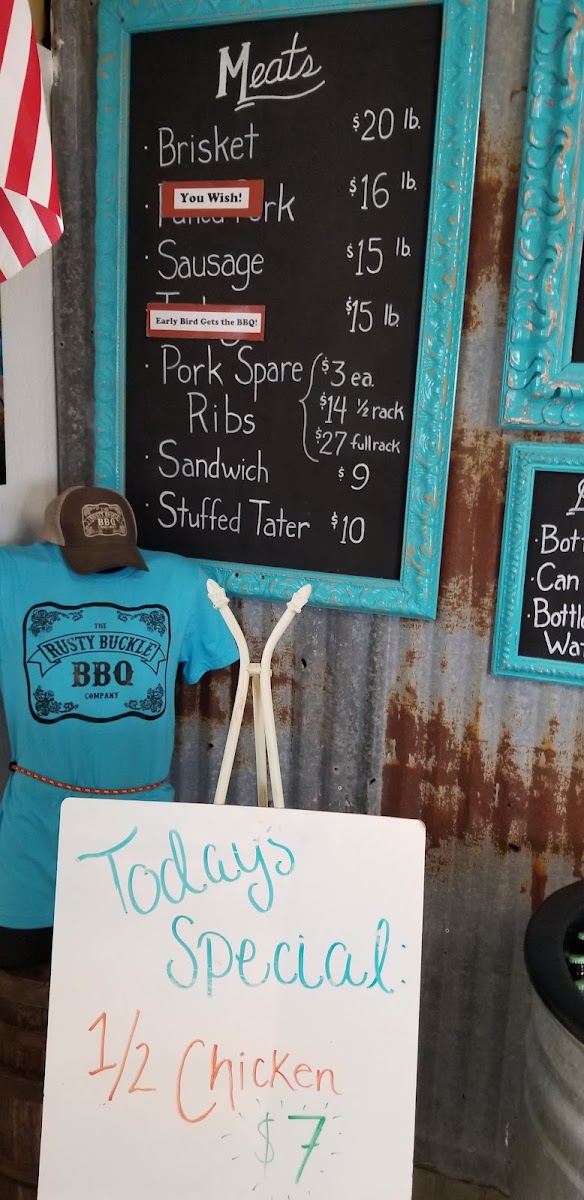 Meats
· Brisket $20 lb.
You Wish!
$16 lb.
· Sausage $15 lb.
Early Bird Gets the BBQ!
$15 lb.
· Pork Spare Ribs
$3 ea.
$14 ½ rack
$27 full rack
· Sandwich $9
· Stuffed Tater $10
THE
RUSTY BUCKLE
BBQ
COMPANY
THE
RUSTY BUCKLE
BBQ
COMPANY
Todays
Special:
1/2 Chicken
$7
· Can